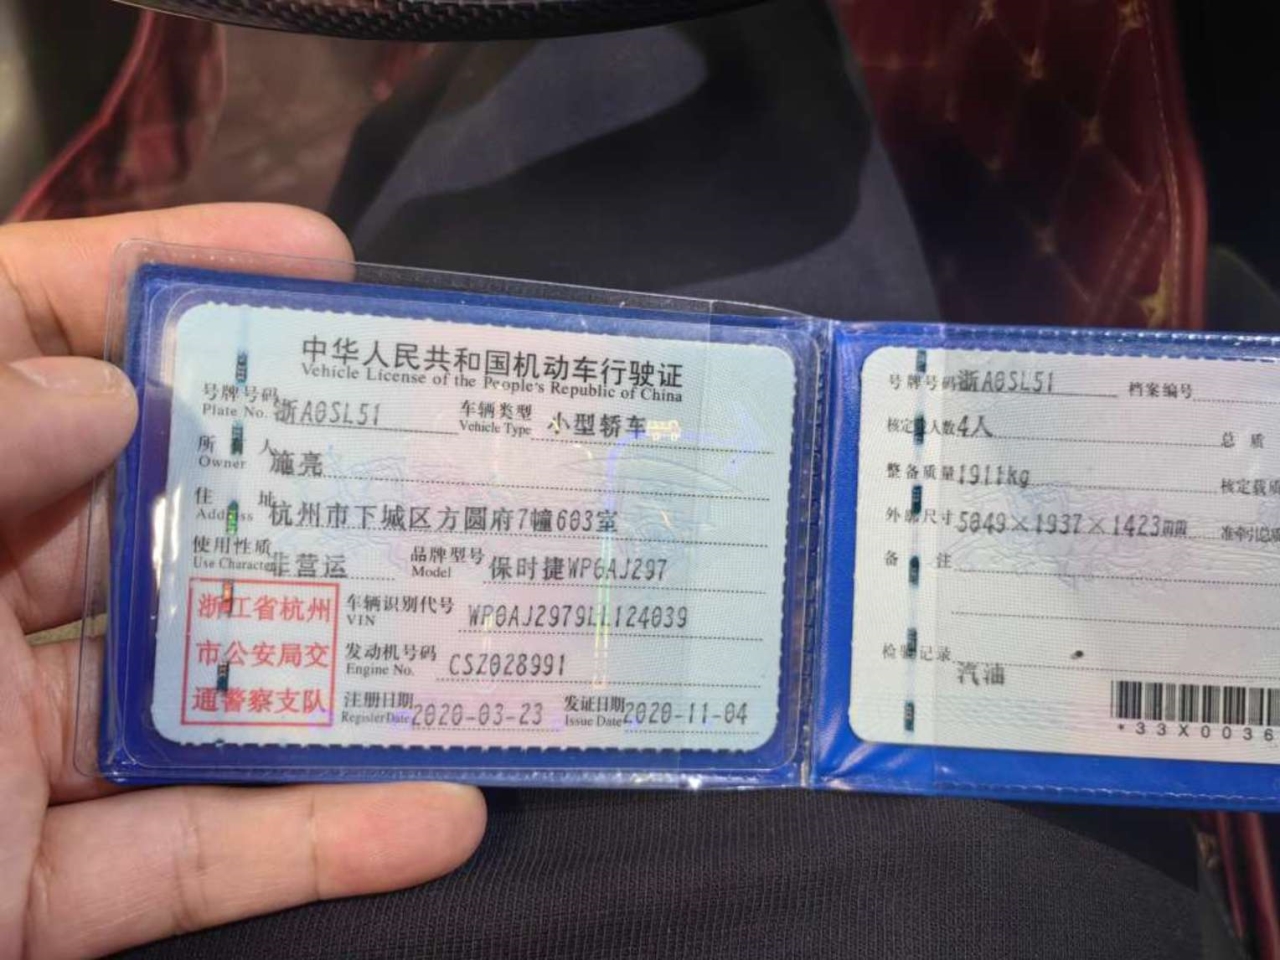 中华人民共和国机动车行驶证
Vehicle License of the People's Republic of China
号牌号码 浙A0SL51 车辆类型 小型轿车
Plate No. Vehicle Type
所 有 人 施亮
Owner
住 址 杭州市下城区方圆府7幢603室
Address
使用性质 非营运 品牌型号 保时捷WP0AJ297
Use Character Model
浙江省杭州
市公安局交
通警察支队
车辆识别代号 WP0AJ2979LL124039
VIN
发动机号码 CSZ028991
Engine No.
注册日期 2020-03-23 发证日期 2020-11-04
Register Date Issue Date
号牌号码 浙A0SL51 档案编号
核定载人数 4人 总 质
整备质量 1911kg 核定载质
外廓尺寸 5049×1937×1423mm 准牵引总质
备 注
检验记录
汽油
*33X0036